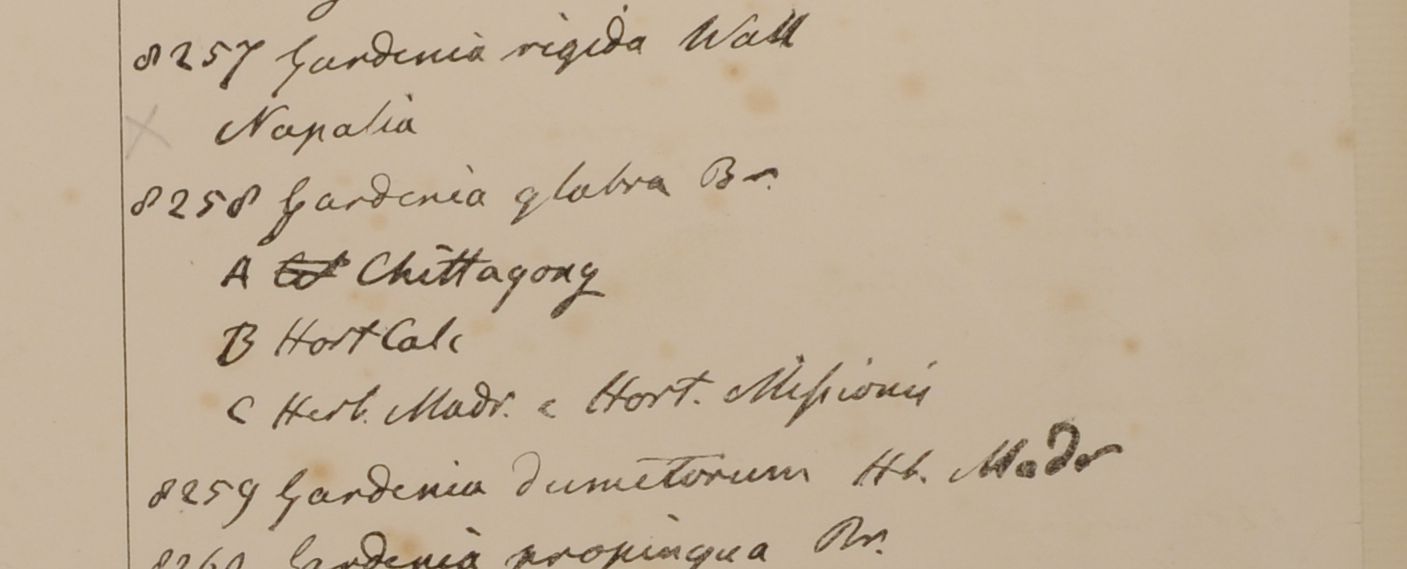 8257 Gardenia rigida Wall
Napalia
8258 Gardenia glabra Br.
A Chittagong
B Hort Calc
C Herb. Madr. e Hort. Missionis
8259 Gardenia dumetorum Hb. Madr
8260 Gardenia propinqua Br.